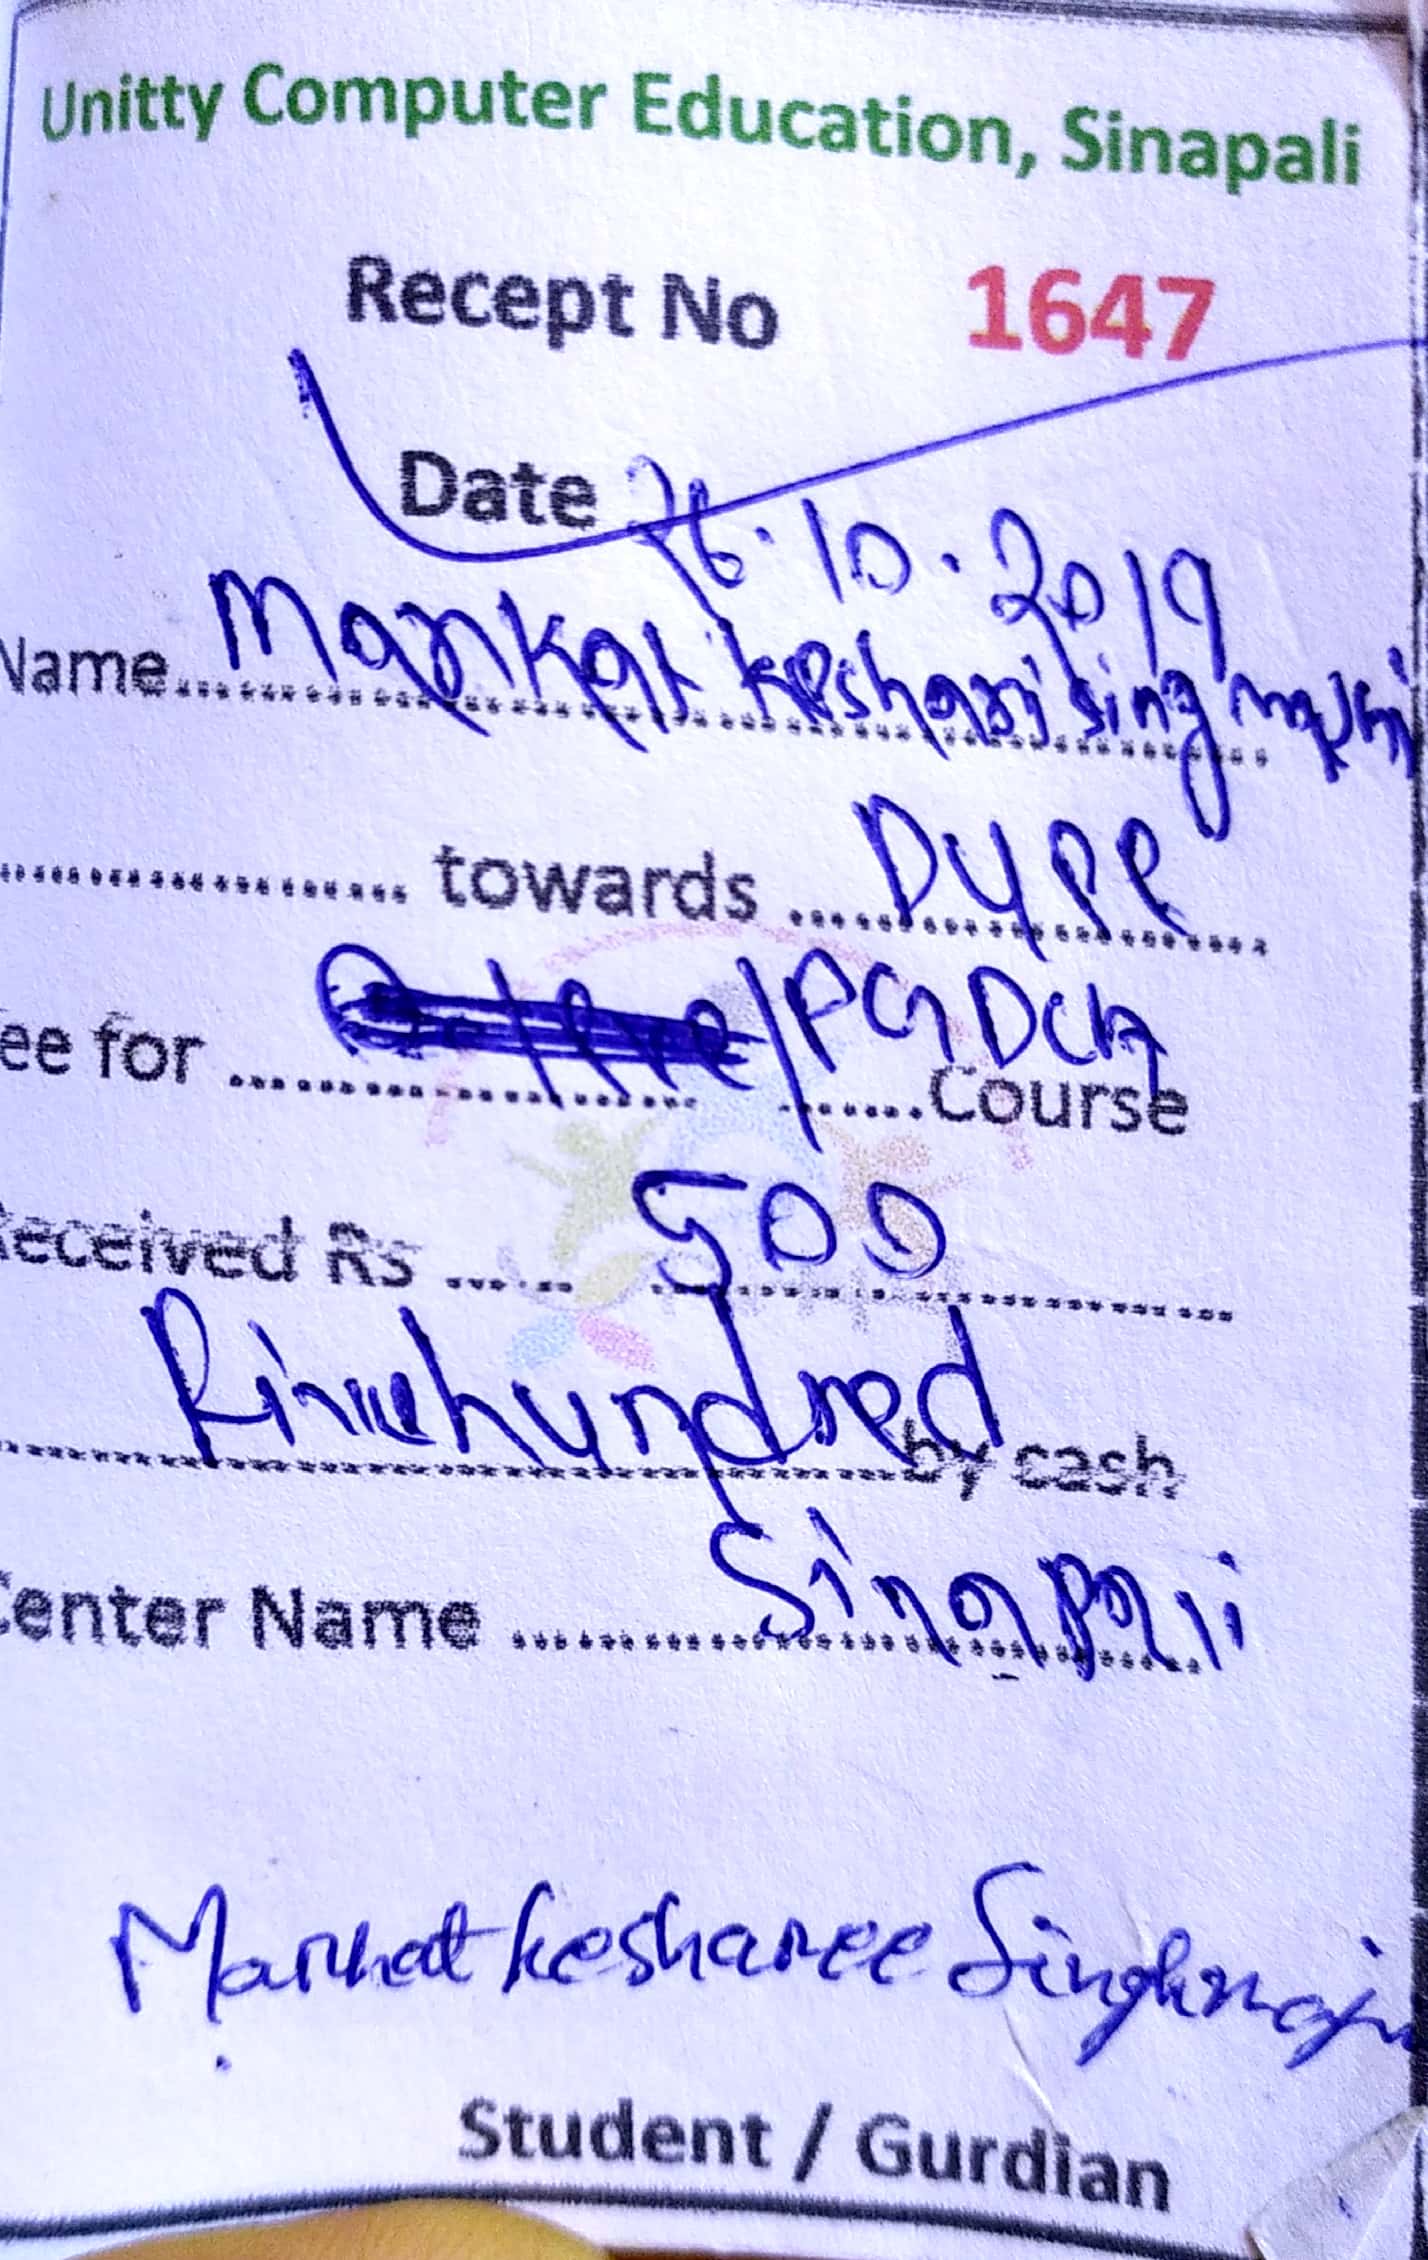 Unitty Computer Education, Sinapali
Recept No 1647
Date 26.10.2019
Name Markat keshari sing majhi
towards Dupe
ee for /PGDCA Course
Received Rs 500
Five hundred by cash
Center Name Sinapali
Markat kesharee Singh
Student / Gurdian